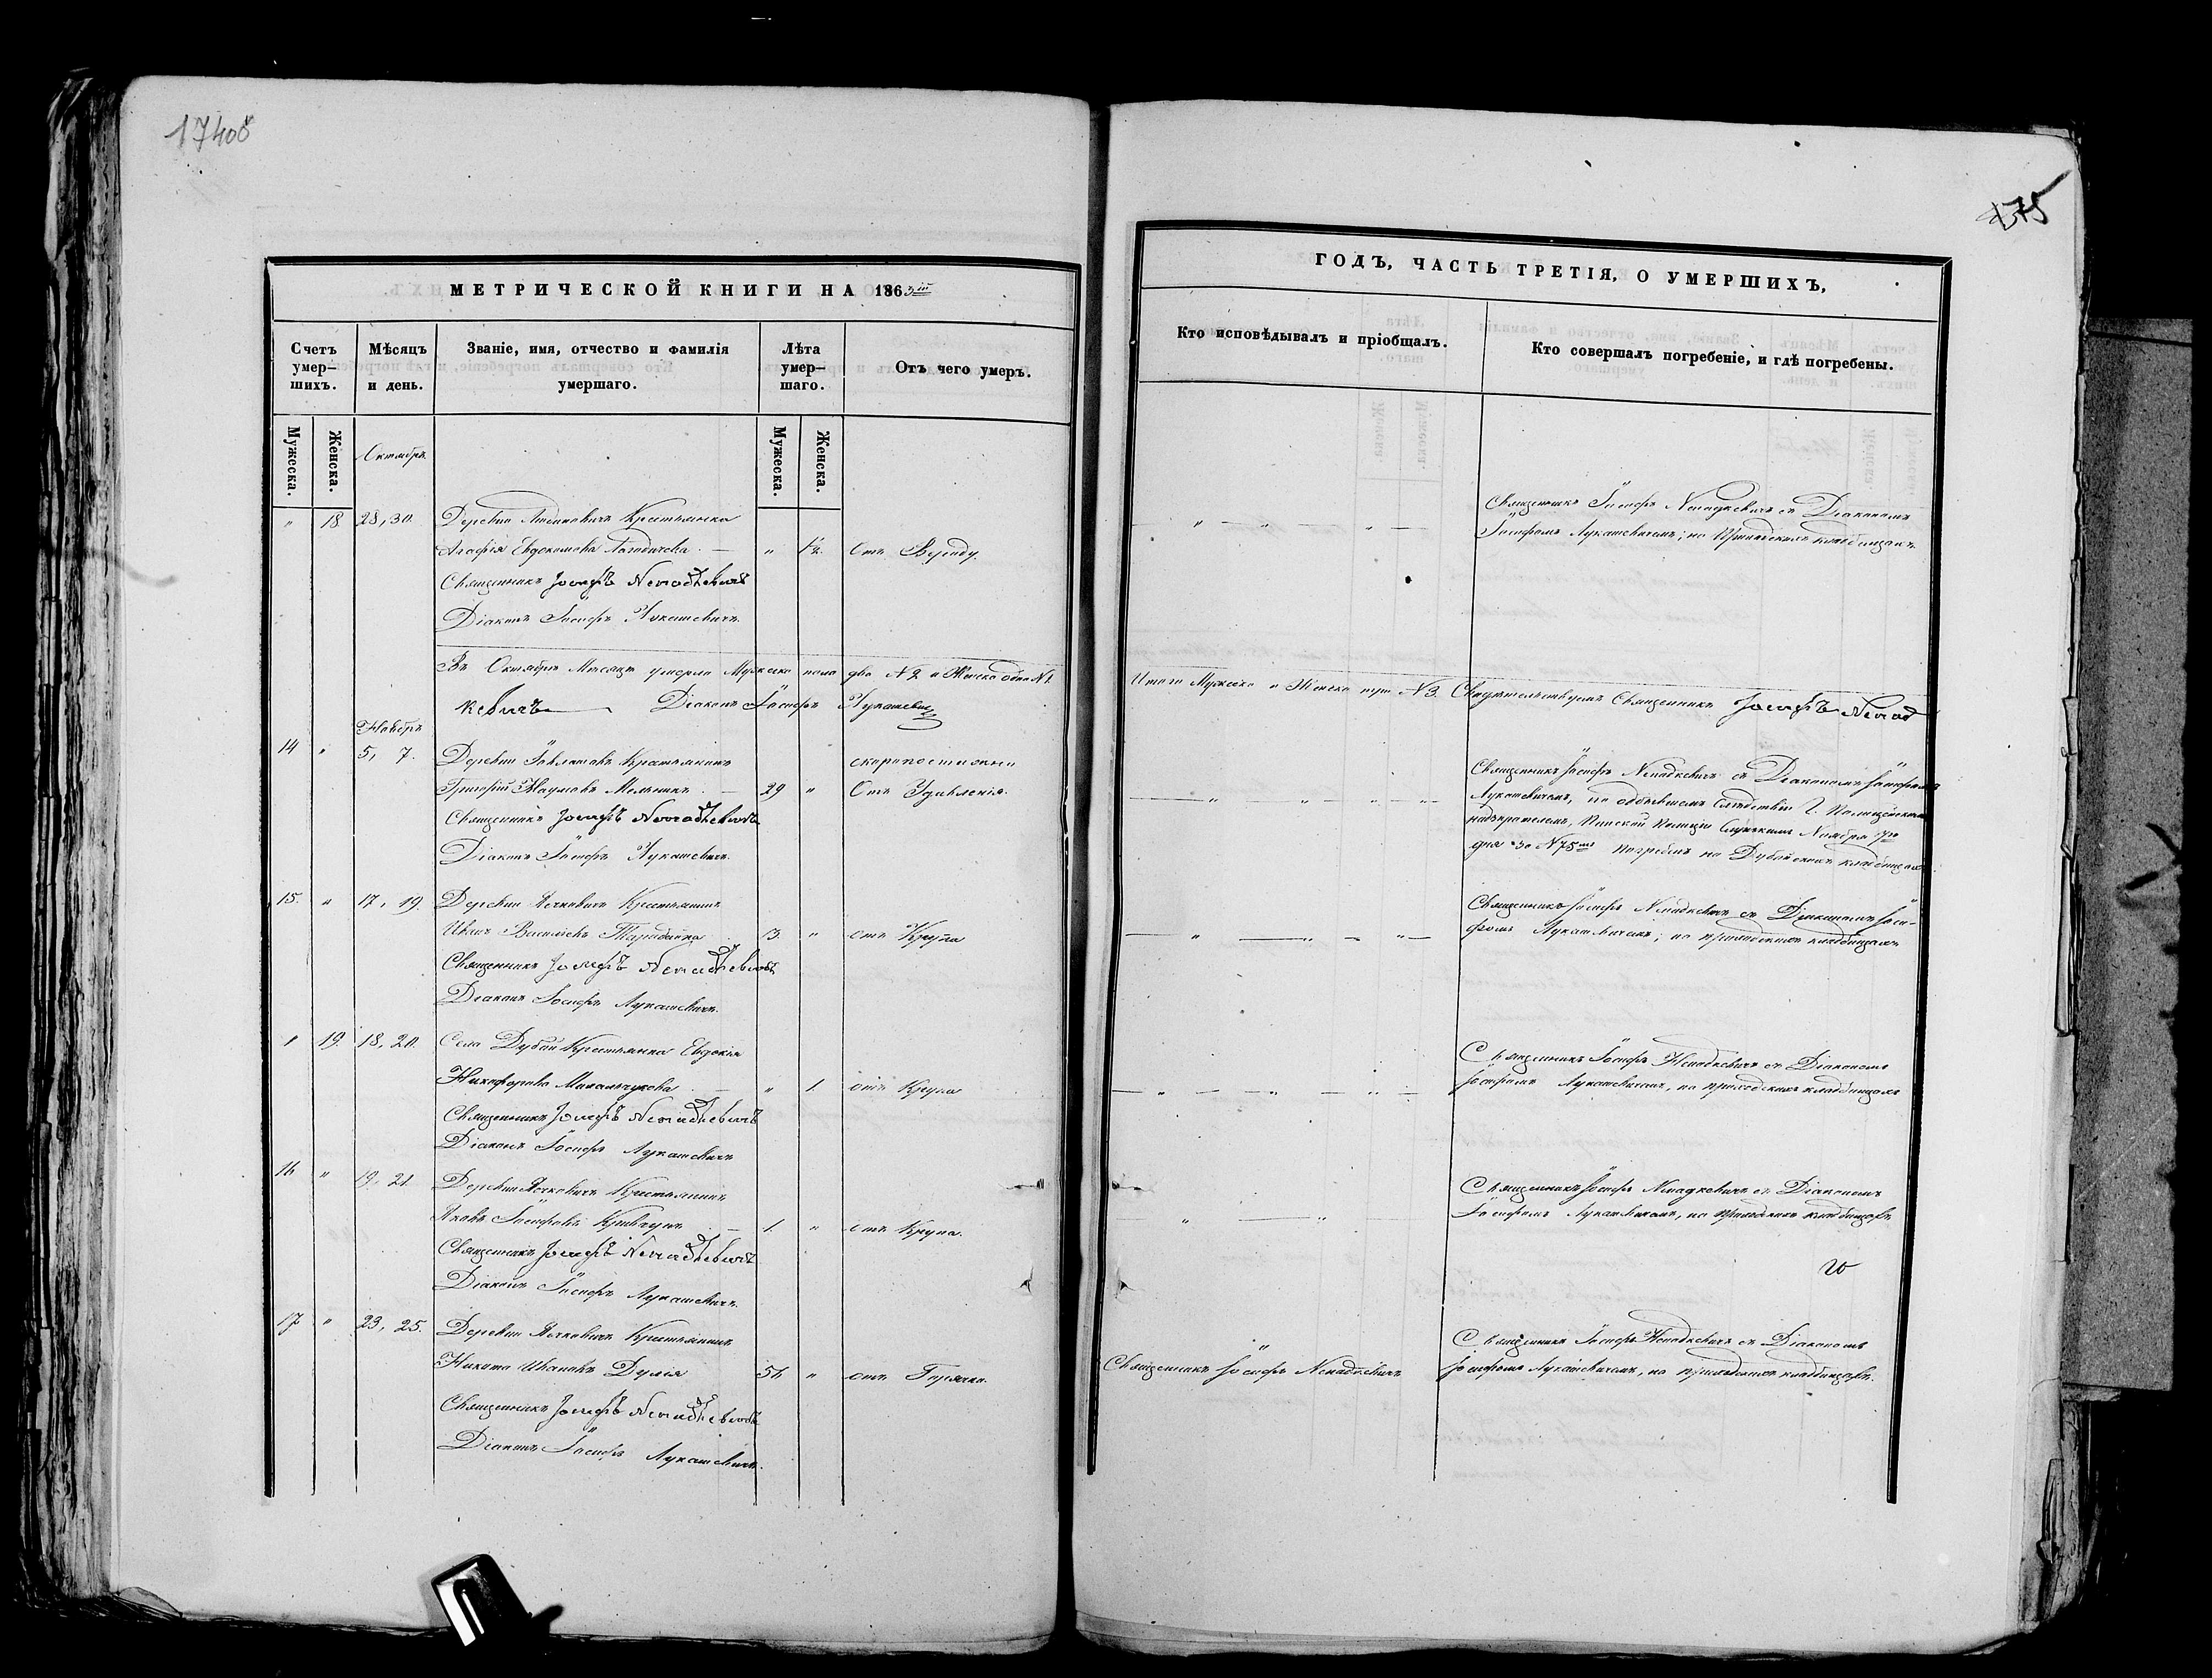 17408
МЕТРИЧЕСКОЙ КНИГИ НА 1863
Счетъ умер-шихъ.
Мѣсяцъ и день.
Званіе, имя, отчество и фамилія умершаго.
Лѣта умер-шаго.
Отъ чего умеръ.
Мужеска.
Женска.
Мужеска.
Женска.
Октябрь
" 18 28, 30. Деревни Крестьянка
Агафія Евдокимова " 1½. Отъ
Священникъ Іосифъ Ненадкевичъ
Діаконъ Іосифъ Лукашевичъ.
Въ Октябрѣ Мѣсяцѣ умерло Мужеска пола два №2 и Женска одна №1.
кевичъ Діаконъ Іосифъ Лукашевичъ
Ноябрь
14 " 5, 7. Деревни Крестьянинъ скоропостижно
Григорій Наумовъ Мельникъ 29 " Отъ
Священникъ Іосифъ Ненадкевичъ
Діаконъ Іосифъ Лукашевичъ.
15. " 17, 19. Деревни Крестьянинъ
Иванъ Васильевъ 3. " отъ Крупа
Священникъ Іосифъ Ненадкевичъ
Діаконъ Іосифъ Лукашевичъ.
" 19. 18, 20. Села Дубои Крестьянка Евдокія
Никифорова Михальчукова " 1. отъ Крупа
Священникъ Іосифъ Ненадкевичъ
Діаконъ Іосифъ Лукашевичъ
16 " 19, 21. Деревни Крестьянинъ
Яковъ Іосифовъ 1. " отъ Крупа.
Священникъ Іосифъ Ненадкевичъ
Діаконъ Іосифъ Лукашевичъ.
17 " 23, 25. Деревни Крестьянинъ
Никита Ивановъ 56 " отъ
Священникъ Іосифъ Ненадкевичъ
Діаконъ Іосифъ Лукашевичъ.
375
ГОДЪ, ЧАСТЬ ТРЕТІЯ, О УМЕРШИХЪ,
Кто исповѣдывалъ и пріобщалъ.
Кто совершалъ погребеніе, и гдѣ погребены.
Священникъ Іосифъ Ненадкевичъ съ Діакономъ
Іосифомъ Лукашевичемъ; на кладбищахъ
Итого Мужеска и Женска пола №3. Священникъ Іосифъ Ненад
Священникъ Іосифъ Ненадкевичъ съ Діакономъ Іосифомъ
Лукашевичемъ, по слѣдствіи Г. Полицейскимъ
надзирателемъ, Пинской Полиціи Ноября 7го
дня за №75мъ погребенъ на кладбищахъ
Священникъ Іосифъ Ненадкевичъ съ Діакономъ Іоси-
фомъ Лукашевичемъ; на приходскихъ кладбищахъ
Священникъ Іосифъ Ненадкевичъ съ Діакономъ
Іосифомъ Лукашевичемъ, на приходскихъ кладбищахъ
Священникъ Іосифъ Ненадкевичъ съ Діакономъ
Іосифомъ Лукашевичемъ, на приходскихъ кладбищахъ
Священникъ Іосифъ Ненадкевичъ съ Діакономъ
Священникъ Іосифъ Ненадкевичъ Іосифомъ Лукашевичемъ, на приходскихъ кладбищахъ.